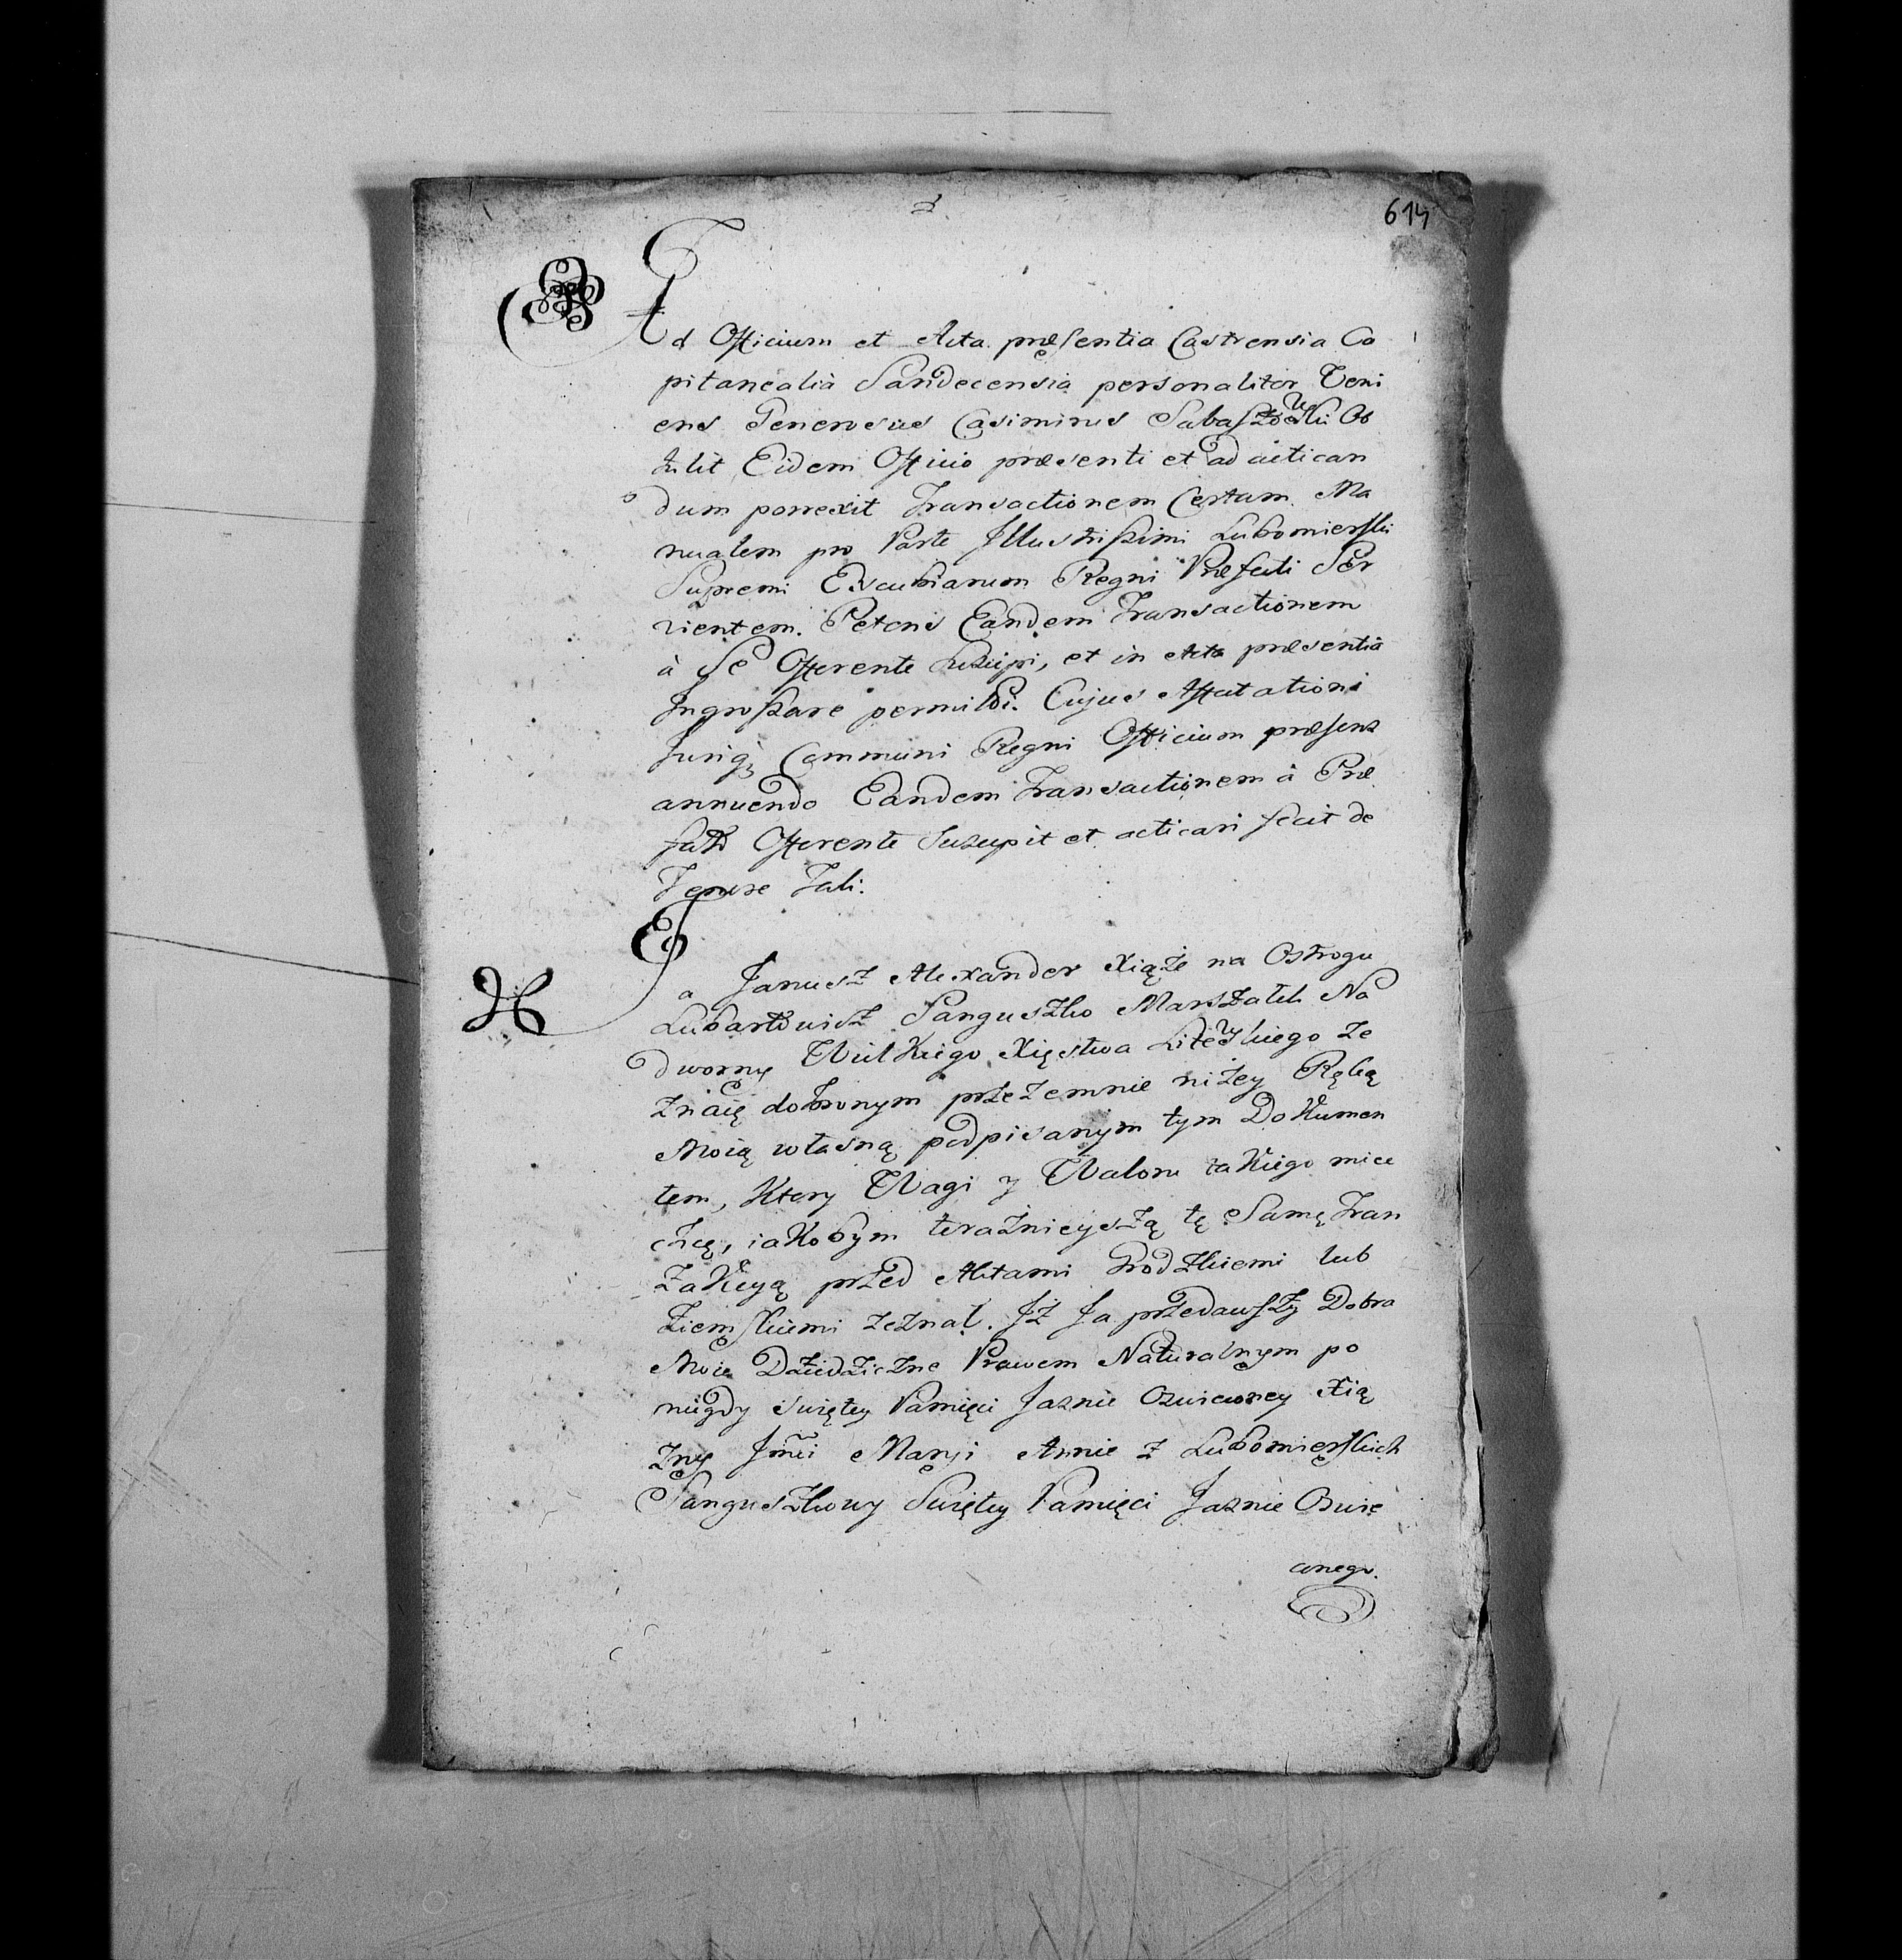 614
Ad Officium et Acta præsentia Castrensia Ca
pitanealia Sandecensia personaliter Veni
ens Generosus Casimirus Ob
tulit Eidem Officio præsenti et ad actican
dum porrexit Transactionem Certam Ma
nualem pro Parte Illustrissimi Lubomierski
Supremi Excubiarum Regni Præfecti Ser
vientem. Petens Eandem Transactionem
à se Offerente suscipi, et in Acta præsentia
Ingrossare permitti. Cujus Affectationi
Juriq; Communi Regni Officium præsens
annuendo Eandem Transactionem à Præ
fato Offerente Suscepit et acticari fecit de
Tenore Tali.
Ja Janusz Alexander Xiąże na Ostrogu
Lubartowicz Sanguszko Marszałek Na
dworny Wielkiego Xięstwa Litewskiego Ze
znaię dobronym przezemnie niżey Ręką
Moią własną podpisanym tym Dokumen
tem, Ktory Wagi y Waloru takiego miec
chcę, iakobym teraznieyszą tę Samę Tran
zakcyą przed Aktami Grodzkiemi lub
Ziemskiemi zeznał. Iż Ja przedawszy Dobra
Moie Dziedziczne Prawem Naturalnym po
niegdy swiętey Pamięci Jasnie Oswieconey Xię
zny Jm̃ci Maryi Annie z Lubomierskich
Sanguszkowy Swiętey Pamięci Jasnie Oswie
conego.